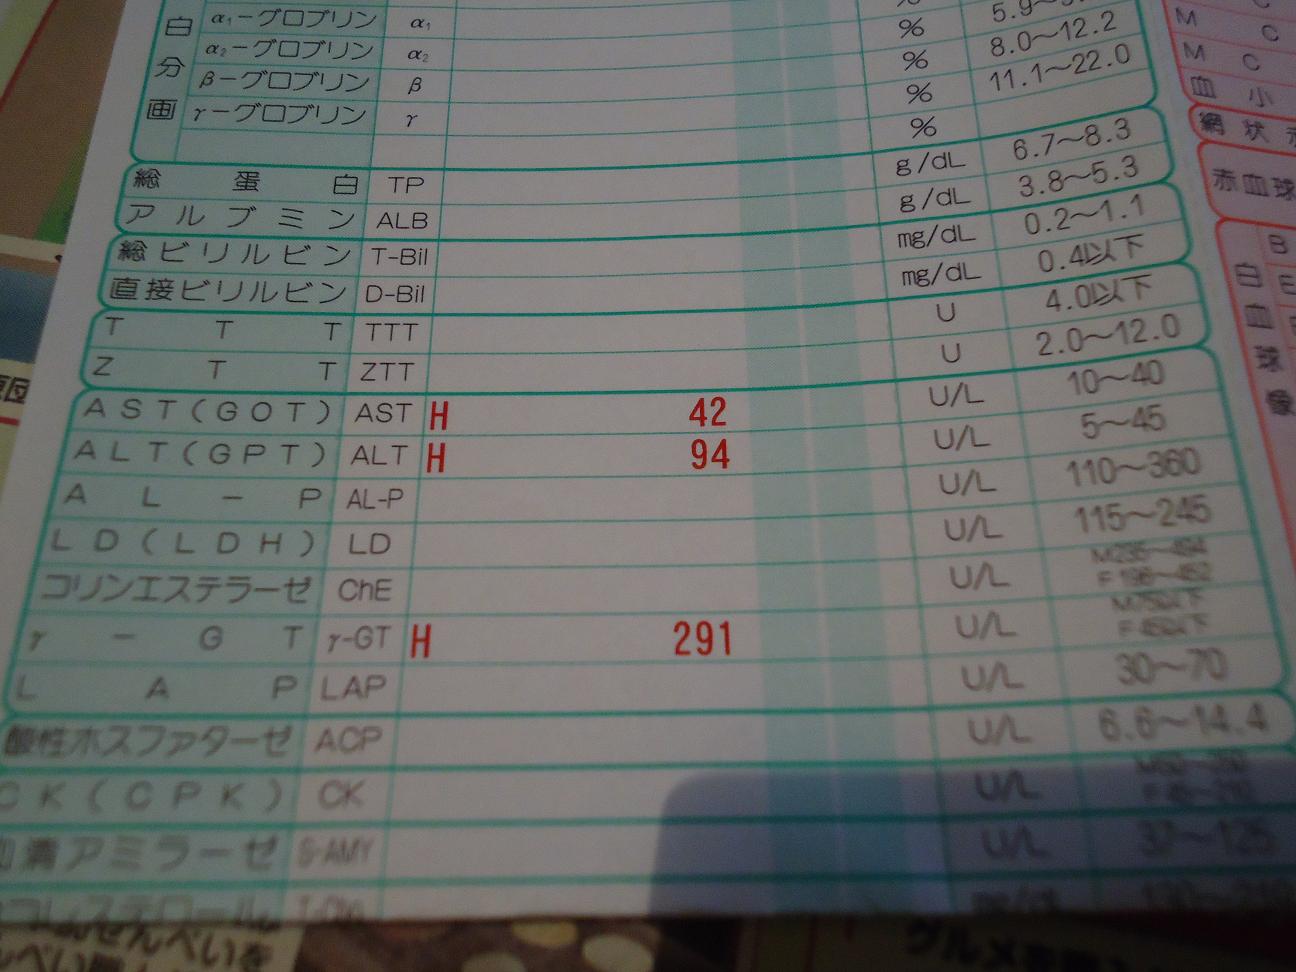 白分画
α₁-グロブリン α₁ %
α₂-グロブリン α₂ % 8.0〜12.2
β-グロブリン β % 11.1〜22.0
γ-グロブリン γ %
総蛋白 TP g/dL 6.7〜8.3
アルブミン ALB g/dL 3.8〜5.3
総ビリルビン T-Bil mg/dL 0.2〜1.1
直接ビリルビン D-Bil mg/dL 0.4以下
TTT TTT U 4.0以下
ZTT ZTT U 2.0〜12.0
AST(GOT) AST H 42 U/L 10〜40
ALT(GPT) ALT H 94 U/L 5〜45
AL-P AL-P U/L 110〜360
LD(LDH) LD U/L 115〜245
コリンエステラーゼ ChE U/L
γ-GT γ-GT H 291 U/L
LAP LAP U/L 30〜70
酸性ホスファターゼ ACP U/L 6.6〜14.4
CK(CPK) CK U/L
清アミラーゼ S-AMY U/L 37〜125
M C
M C
血小
網状
赤血球
白血球像
B
E